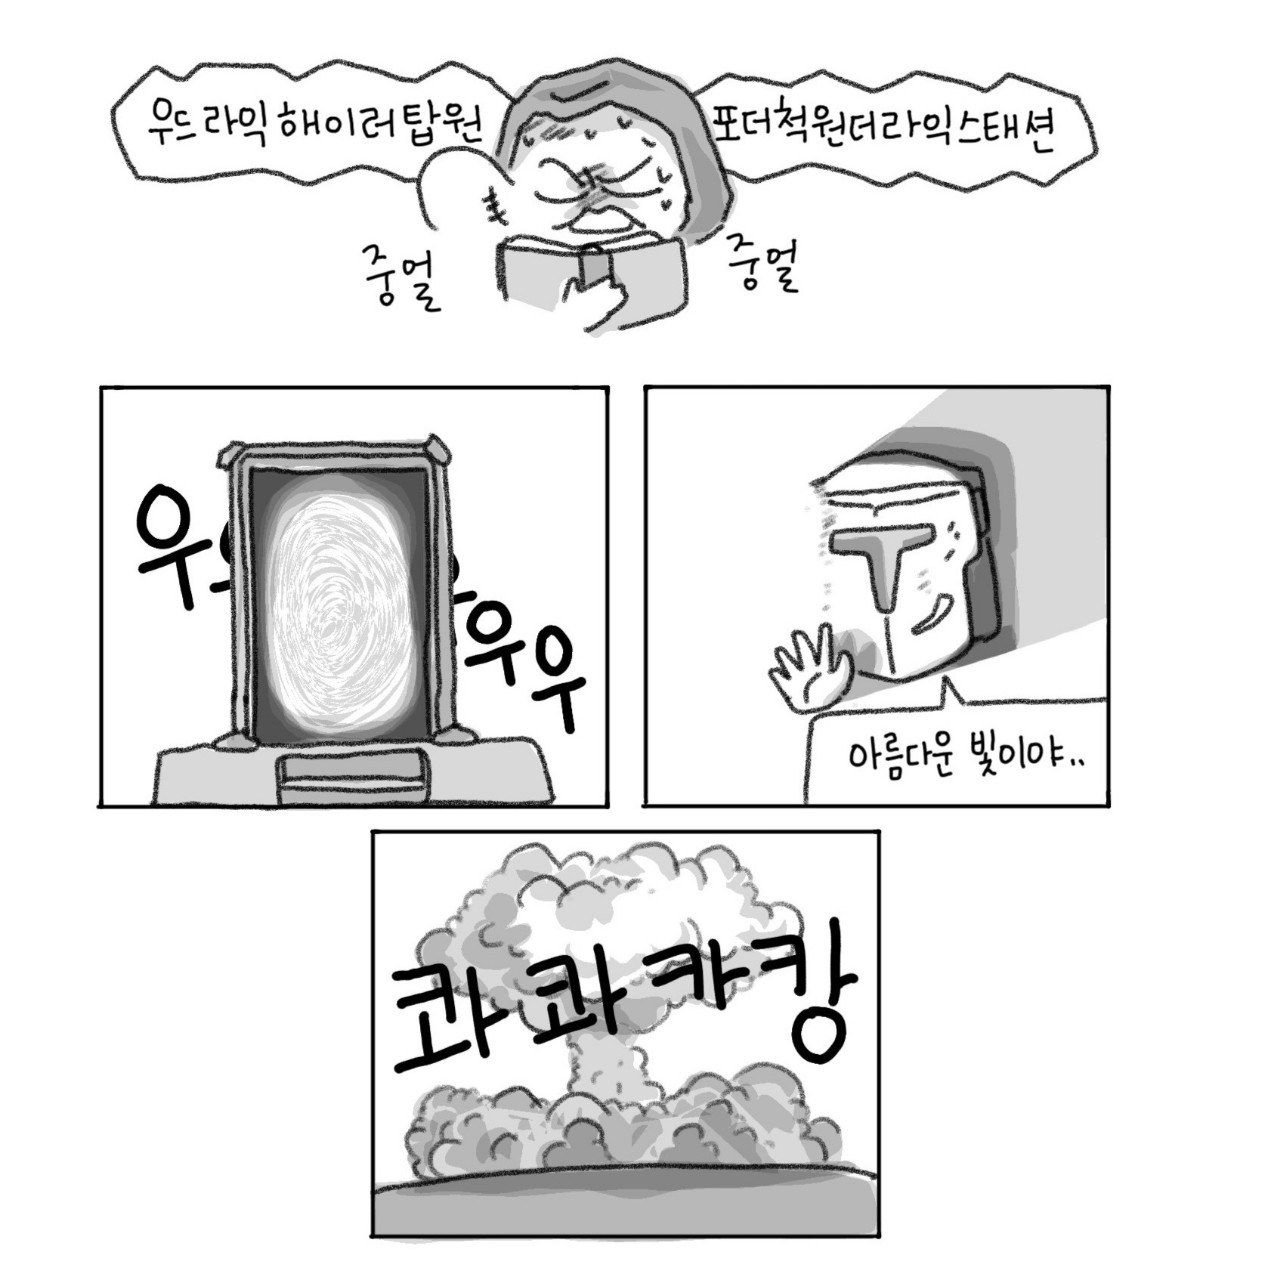 우드 라익 해이러탑원
포더척원더라익스태션
중얼
중얼
우
우우
아름다운 빛이야..
콰콰카캉